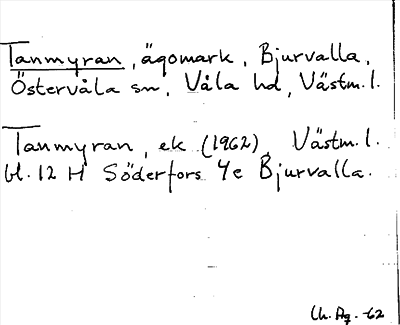 Tanmyran, ägomark, Bjurvalla,
Östervåla sn, Våla hd, Västm. l.
Tanmyran, ek (1962), Västm. l.
bl. 12 H Söderfors 4e Bjurvalla.
Ch. Ag. -62